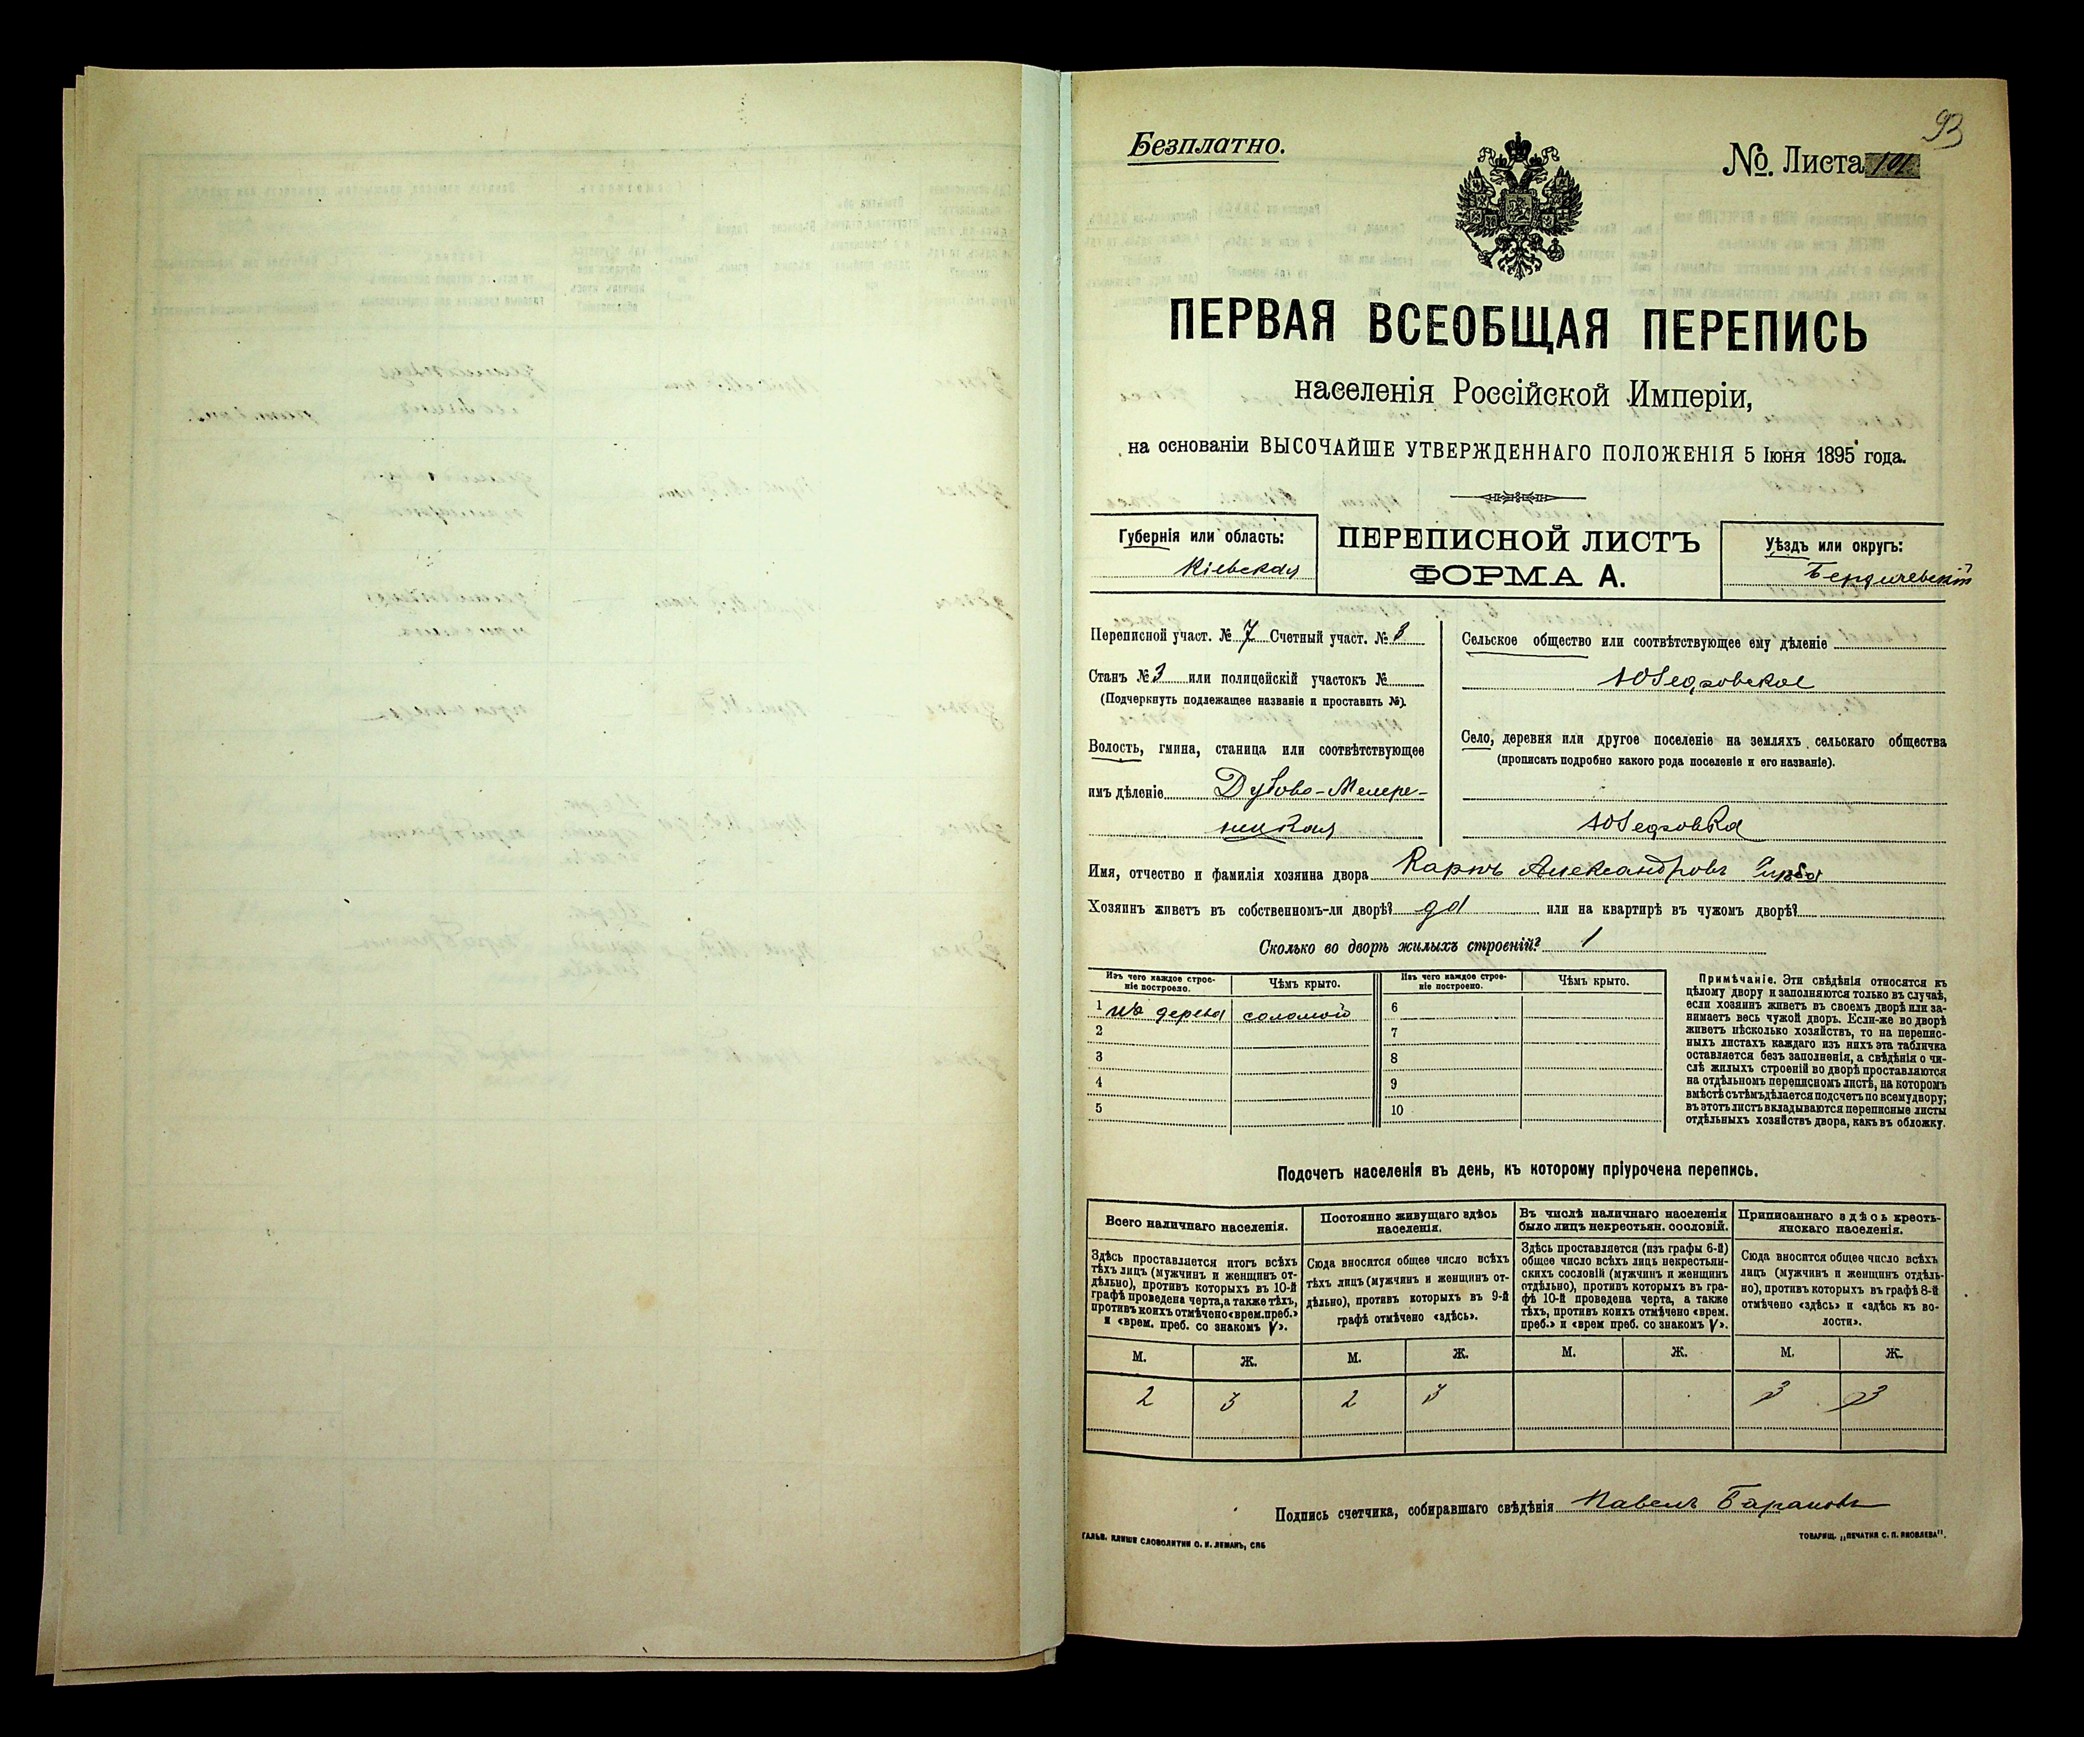 93
Безплатно.
№. Листа 101
ПЕРВАЯ ВСЕОБЩАЯ ПЕРЕПИСЬ
населенія Россійской Имперіи,
на основаніи ВЫСОЧАЙШЕ УТВЕРЖДЕННАГО ПОЛОЖЕНІЯ 5 Іюня 1895 года.
Губернія или область:
Кіевская
ПЕРЕПИСНОЙ ЛИСТЪ
ФОРМА А.
Уѣздъ или округъ:
Бердичевскій
Переписной участ. № 7 Счетный участ. № 8
Станъ № 3 или полицейскій участокъ №
(Подчеркнуть подлежащее названіе и проставить №).
Волость, гмина, станица или соотвѣтствующее
имъ дѣленіе Дубово-Мехере-
нецкая
Сельское общество или соотвѣтствующее ему дѣленіе
Юзефовское
Село, деревня или другое поселеніе на земляхъ сельскаго общества
(прописать подробно какого рода поселеніе и его названіе).
Юзефовка
Имя, отчество и фамилія хозяина двора Карпъ Александровъ
Хозяинъ живетъ въ собственномъ-ли дворѣ? да или на квартирѣ въ чужомъ дворѣ?
Сколько во дворѣ жилыхъ строеній? 1
Изъ чего каждое строе-
ніе построено.
Чѣмъ крыто.
Изъ чего каждое строе-
ніе построено.
Чѣмъ крыто.
1 изъ дерева соломой 6
2 7
3 8
4 9
5 10
Примѣчаніе. Эти свѣдѣнія относятся къ
цѣлому двору и заполняются только въ случаѣ,
если хозяинъ живетъ въ своемъ дворѣ или за-
нимаетъ весь чужой дворъ. Если-же во дворѣ
живетъ нѣсколько хозяйствъ, то на перепис-
ныхъ листахъ каждаго изъ нихъ эта табличка
оставляется безъ заполненія, а свѣдѣнія о чи-
слѣ жилыхъ строеній во дворѣ проставляются
на отдѣльномъ переписномъ листѣ, на которомъ
вмѣстѣ съ тѣмъ дѣлается подсчетъ по всему двору;
въ этотъ листъ вкладываются переписные листы
отдѣльныхъ хозяйствъ двора, какъ въ обложку.
Подсчетъ населенія въ день, къ которому пріурочена перепись.
Всего наличнаго населенія.
Здѣсь проставляется итогъ всѣхъ
тѣхъ лицъ (мужчинъ и женщинъ от-
дѣльно), противъ которыхъ въ 10-й
графѣ проведена черта, а также тѣхъ,
противъ коихъ отмѣчено «врем. преб.»
и «врем. преб. со знакомъ V».
Постоянно живущаго здѣсь
населенія.
Сюда вносится общее число всѣхъ
тѣхъ лицъ (мужчинъ и женщинъ от-
дѣльно), противъ которыхъ въ 9-й
графѣ отмѣчено «здѣсь».
Въ числѣ наличнаго населенія
было лицъ некрестьян. сословій.
Здѣсь проставляется (изъ графы 6-й)
общее число всѣхъ лицъ некрестьян-
скихъ сословій (мужчинъ и женщинъ
отдѣльно), противъ которыхъ въ гра-
фѣ 10-й проведена черта, а также
тѣхъ, противъ коихъ отмѣчено «врем.
преб.» и «врем преб. со знакомъ V».
Приписаннаго здѣсь кресть-
янскаго населенія.
Сюда вносится общее число всѣхъ
лицъ (мужчинъ и женщинъ отдѣль-
но), противъ которыхъ въ графѣ 8-й
отмѣчено «здѣсь» и «здѣсь въ во-
лости».
М. Ж. М. Ж. М. Ж. М. Ж.
2 3 2 3 3 3
Подпись счетчика, собиравшаго свѣдѣнія Павелъ Барановъ
ГАЛЬВ. КЛИШЕ СЛОВОЛИТНИ О. И. ЛЕМАНЪ, СПБ
ТОВАРИЩ. „ПЕЧАТНЯ С. П. ЯКОВЛЕВА".